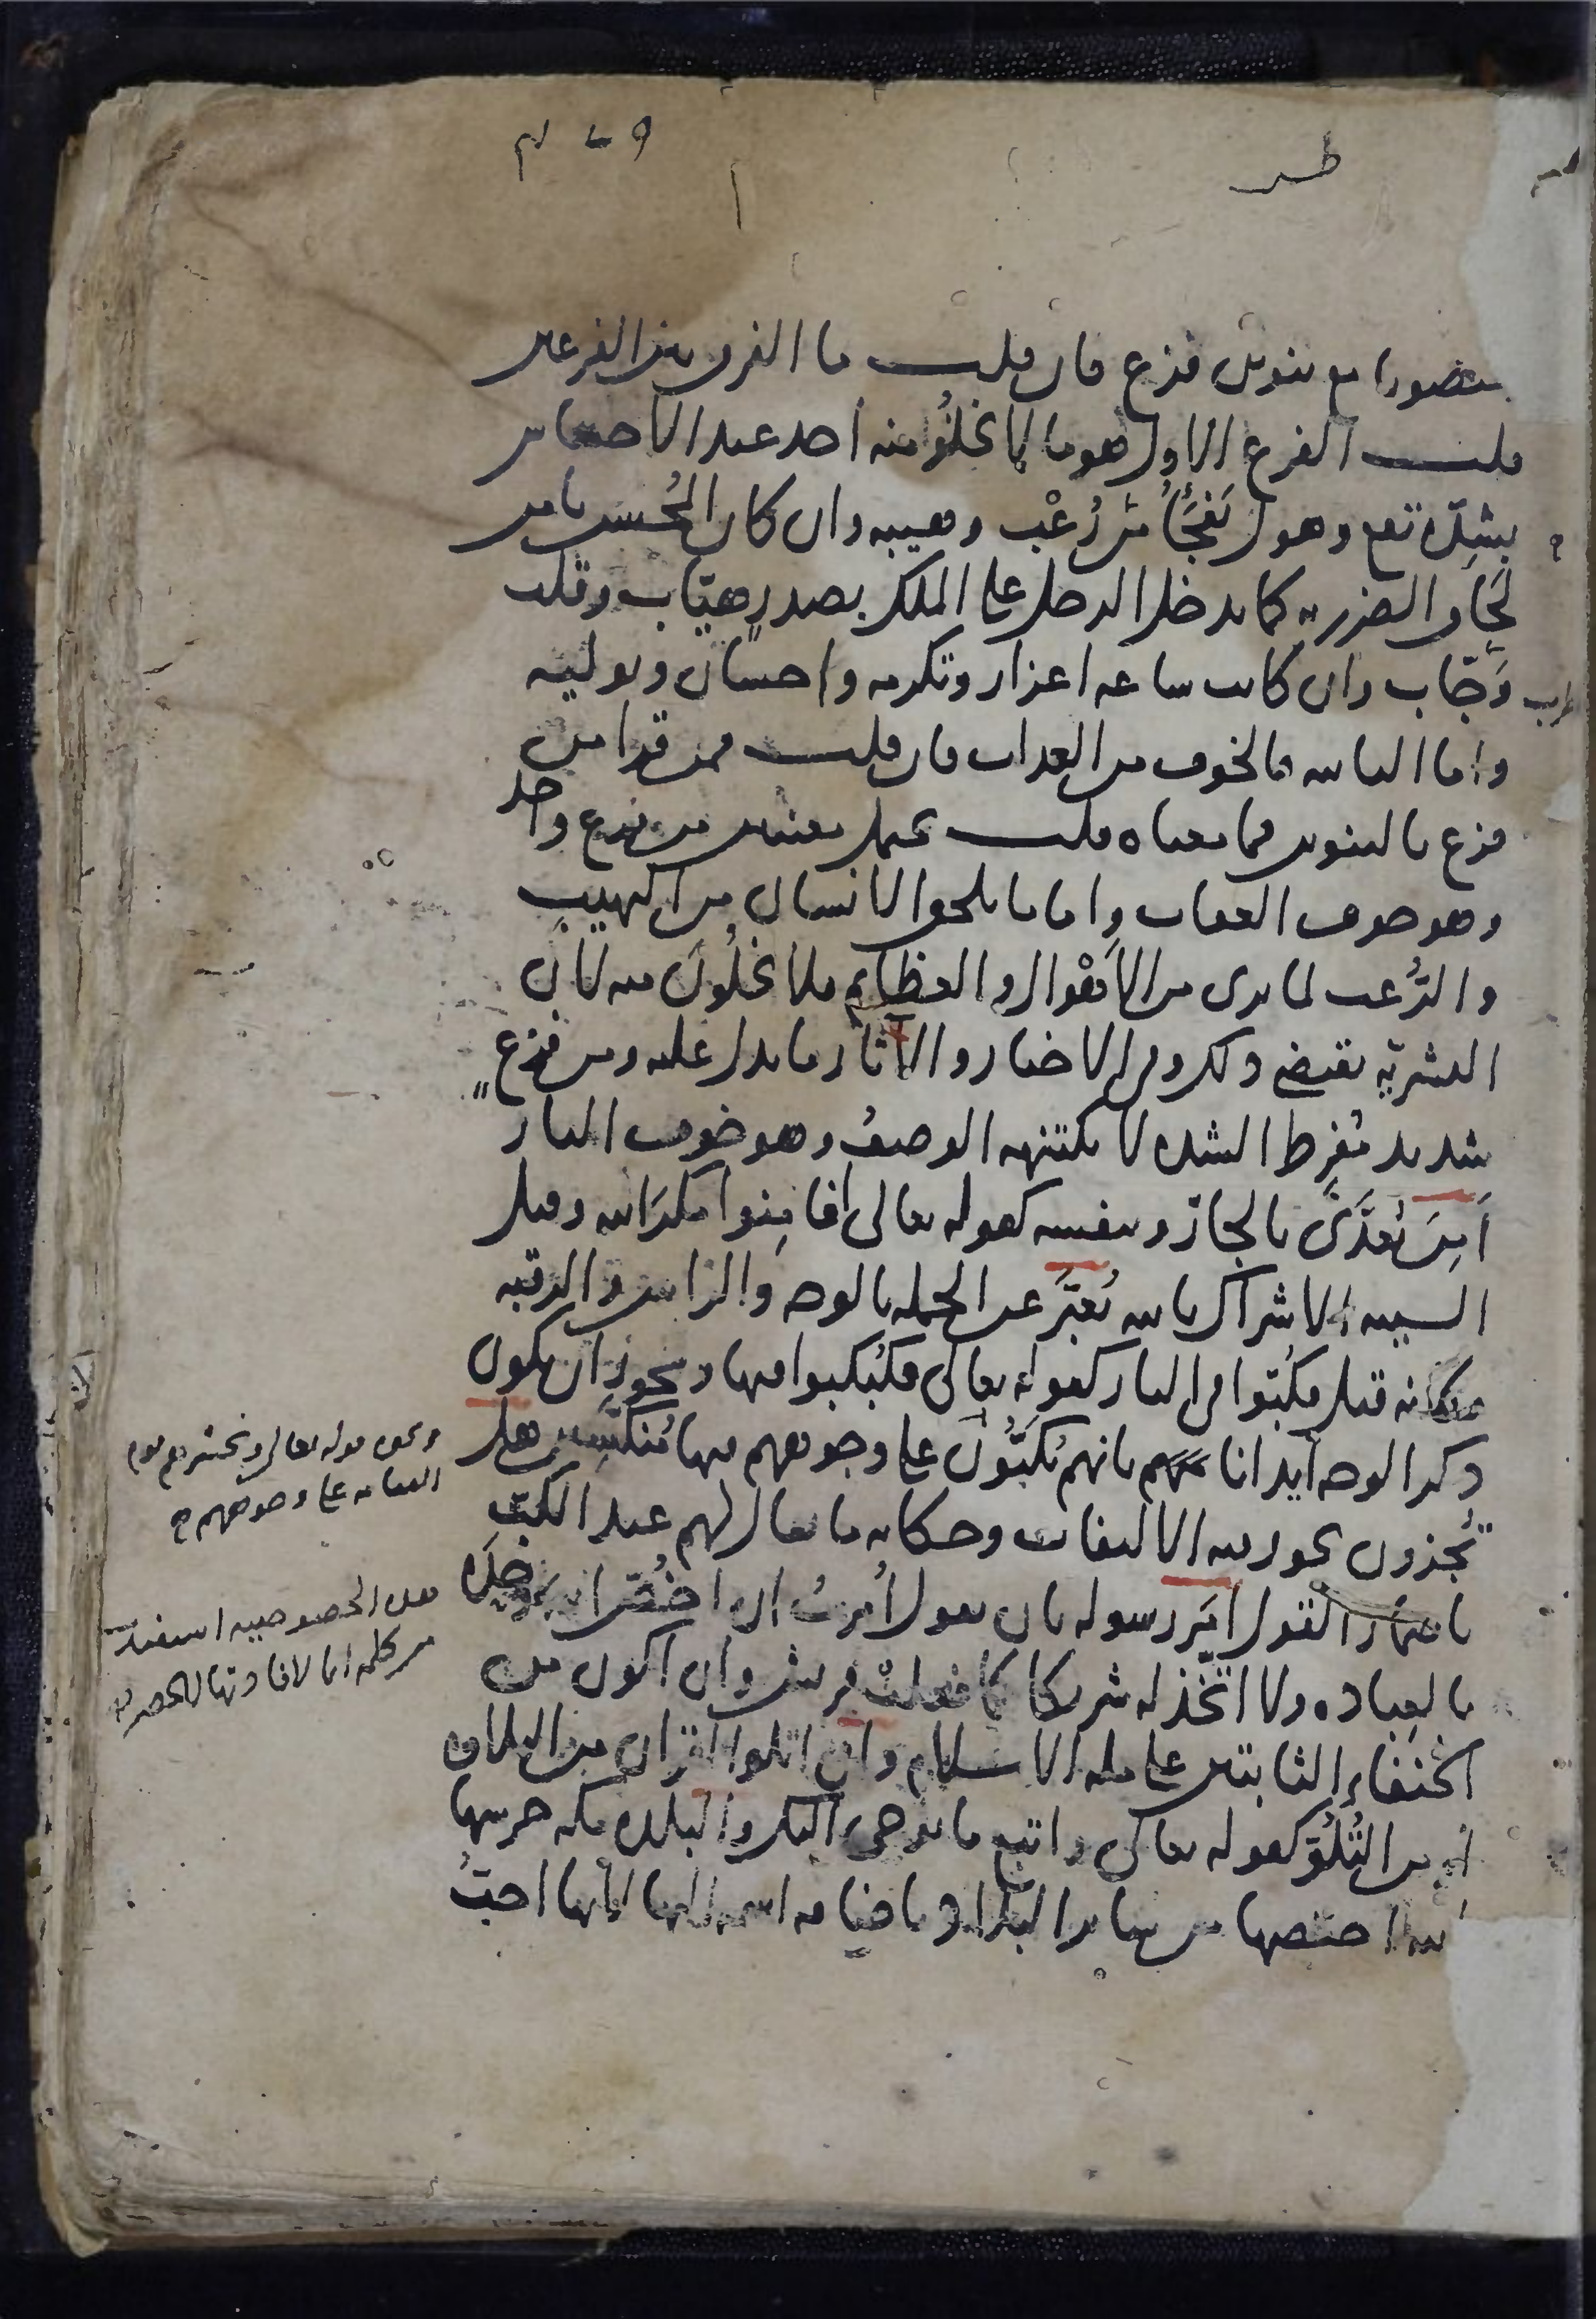 طس
منصوبا مع تنوين فزع فان قلت ما الفرق بين الفزعين
قلت الفزع الاول هو ما لا يخلوا منه احد عند الاحساس
بشدّة تقع وهول يَفْجَأُ من رُعْب وهيبة وان كان المُحسن يأمن
لحاق الضرر به كما يدخل الرجل على الملك بصدر هيّاب وقلب
وَجّاب وان كانت ساعة اعزاز وتكرمة واحسان وتولية
واما الثانية فالخوف من العذاب فان قلت فمن قرا من
فزع بالتنوين فما معناه قلت يحتمل معنيين من فزع واحد
وهو خوف العقاب واما ما يلحق الانسان من التهيب
والرُّعب لما يرى من الأهْوال والعظايم فلا يخلُونَ منه لان
البشريّة تقتضي ذلك وفي الاخبار والآثار ما يدل عليه ومن فزع
شديد مُفرِط الشدة لا يكتنهه الوصفُ وهو خوف النار
اَمِنَ يُعدَّى بالجارّ وبنفسه كقوله تعالى افامِنوا مكرَ الله وقيل
السيئة الاشراك بالله يُعبَّر عن الجملة بالوجه والراس والرقبة
فكانه قيل فكُبّوا في النار كقوله تعالى فكُبكبوا فيها ويجوز ان يكون
ذكر الوجه ايذانا بانهم يُكَبُّونَ على وجوههم فيها مُنكسِين هل
تُجزون يجوز فيه الالتفات وحكاية ما يقال لهم عند الكبّ
باضمار القول امَر رسوله بان يقول أمرتُ ان اخُصَّ الله وحدَه
بالعبادة ولا اتّخذ له شريكا كما فعلت قريش وان اكون من
الحُنَفاءِ الثابتين على ملة الاسلام وان اتلوا القران من التلاوة
او من التُّلُوّ كقوله تعالى واتبع ما يوحى اليك والبلدة مكة حرسها
الله اختصها من ساير البلاد باضافة اسمه اليها لانها احبُّ
ونحوه قوله تعالى ونحشرهم يوم
القيامة على وجوههم
معنى الخصوصية استفيد
من كلمة انما لافادتها الحصر